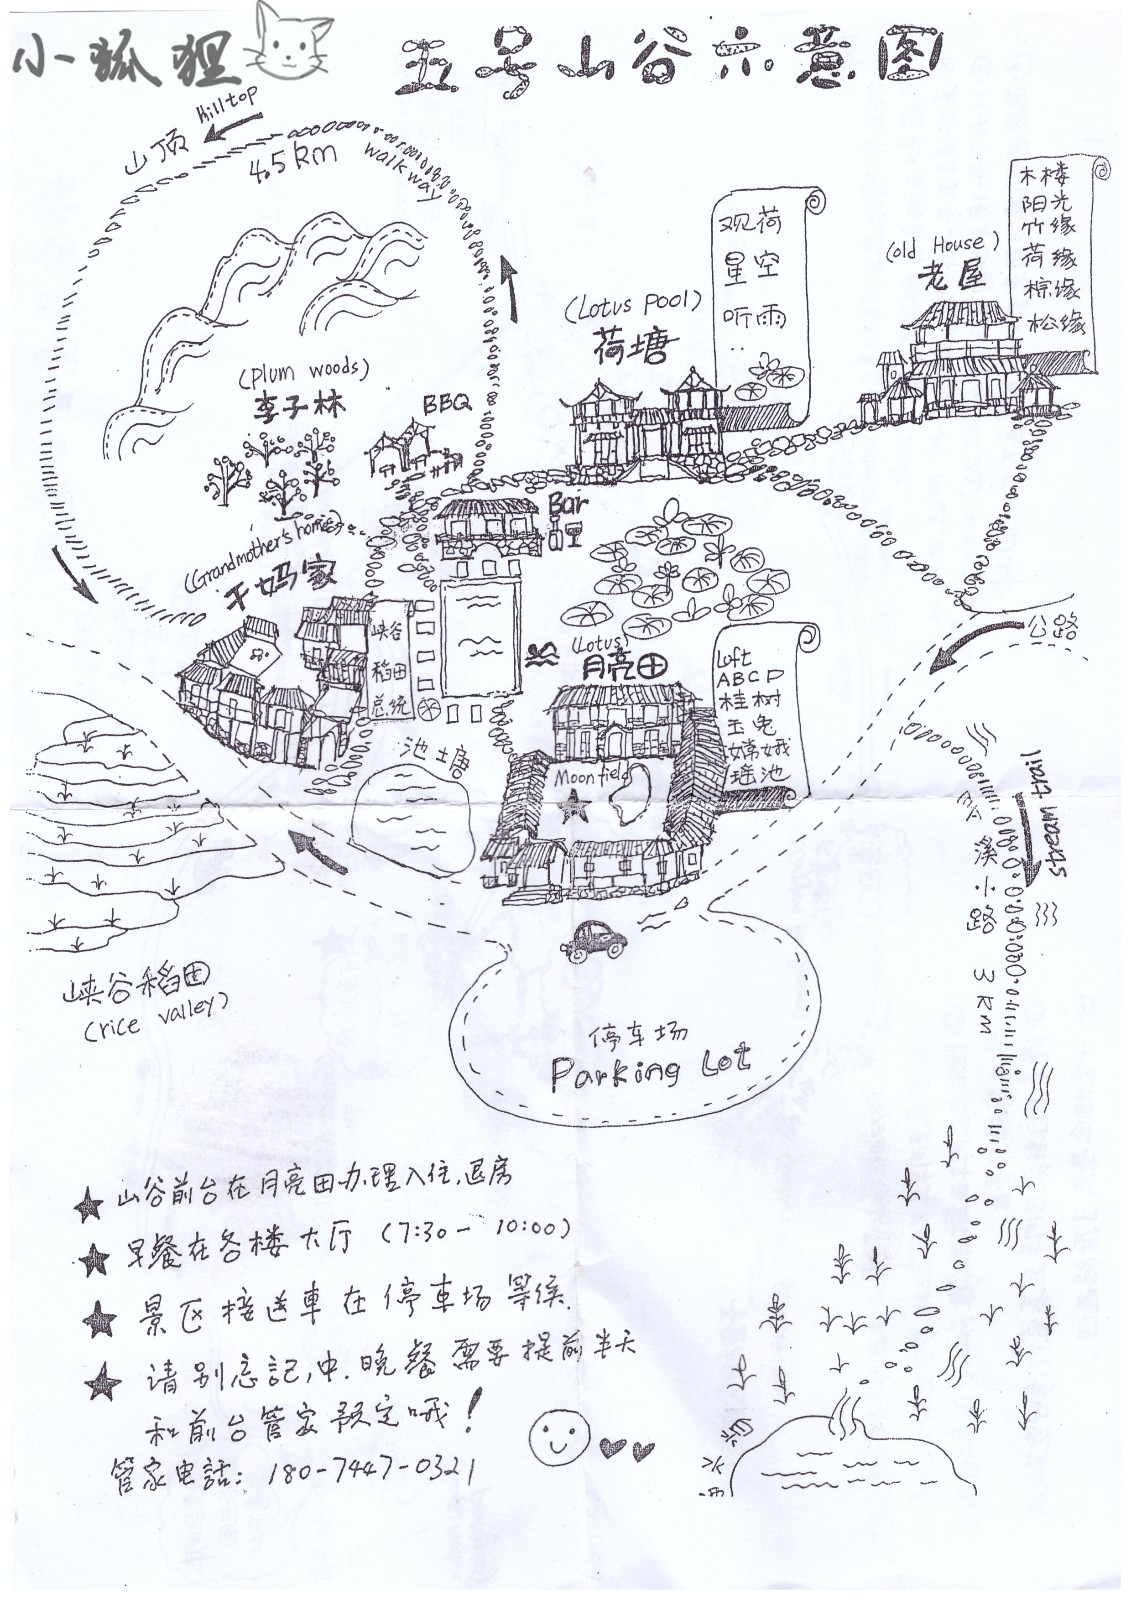 小狐狸
五号山谷示意图
山顶
hilltop
4.5km
walk way
(Plum woods)
李子林
BBQ
(Lotus Pool)
荷塘
观荷
星空
听雨
(old House)
老屋
木楼
阳光
竹缘
荷缘
棕缘
松缘
Bar
(Grandmother's home)
干妈家
峡谷
稻田
总统
(Lotus)
月亮田
Loft
ABCD
桂树
玉兔
嫦娥
瑶池
Moon field
池塘
公路
stream trail
溪小路 3km
峡谷稻田
(rice valley)
停车场
Parking Lot
★山谷前台在月亮田办理入住,退房
★早餐在各楼大厅 (7:30-10:00)
★景区接送車在停車场等侯.
★请别忘記,中.晚餐需要提前半天
和前台管家预定哦!
管家电話: 180-7447-0321